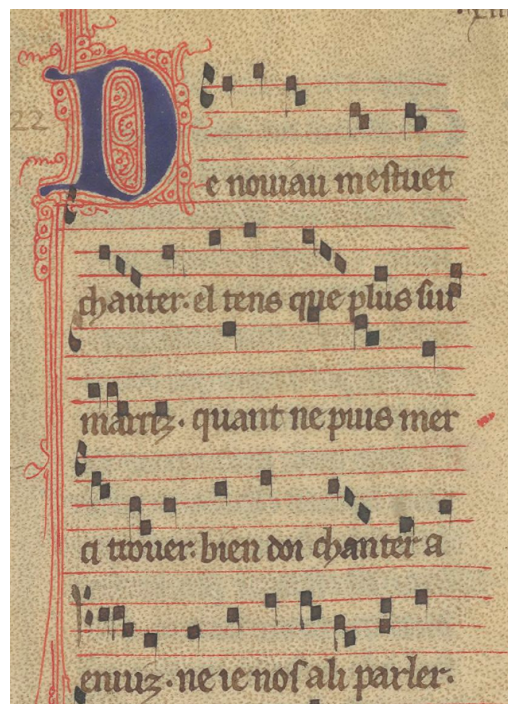 De nouiau mestuet
chanter. el tens que plus sui
marriz. quant ne puis mer
ci trouer. bien doi chanter a
enuiz. ne ie nos a li parler.
22